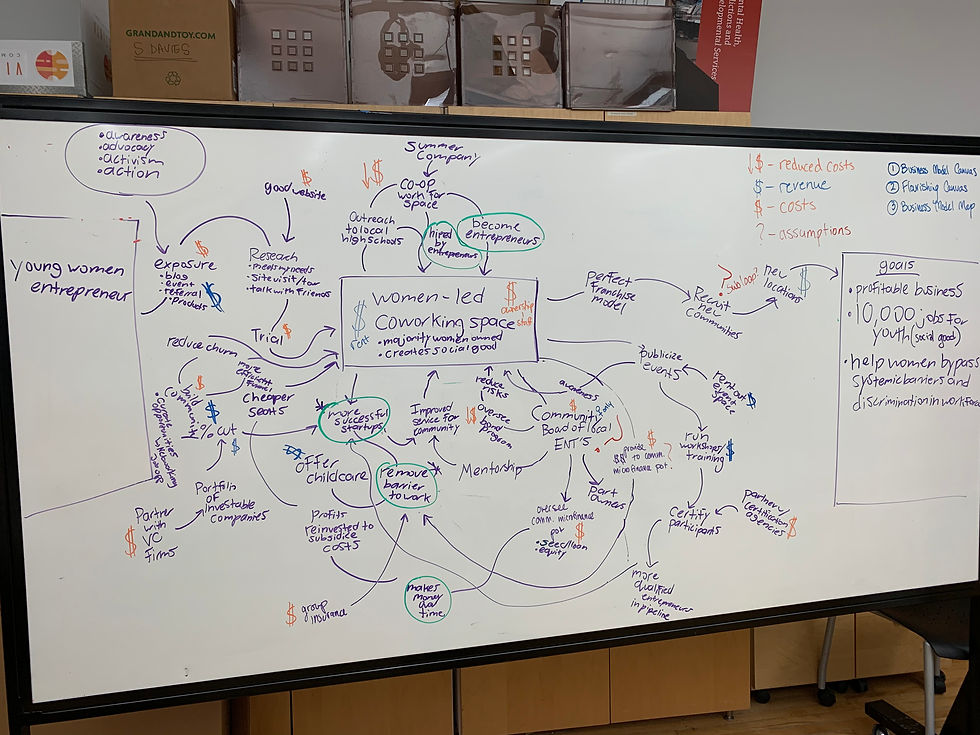 GRANDANDTOY.COM
S DAVIES
ntal Health,
dictions and
velopmental Services
• awareness
• advocacy
• activism
• action
young women
entrepreneur
exposure
• blog
• event
• referral
• Products
$
$
good website
$
Research
• meets my needs
• Site visit/tour
• talk with friends
Trial
$
reduce churn
more
efficient
cheaper
seats
build
community
$
$
% cut
$
Portfolio
of
investable
companies
Partner
with
VC
firms
$
Summer
Company
↓$
CO-OP
work for
Space
Outreach
to local
highschools
hired
by
entrepreneurs
become
entrepreneurs
women-led
coworking space
• majority women owned
• creates social good
$
rent
$
ownership
staff
more
successful
startups
Improved
service for
community
reduce
risks
↓$
oversee
bond
program
awareness
$
Community
Board of local
ENT'S
Mentorship
offer
childcare
remove
barrier
to work
Profits
reinvested to
subsidize
costs
makes
money
over
time
$ group
insurance
oversee
comm. microfinance
pot
• seed/loan
• equity
$
part
owners
$
provide
to comm.
microfinance pot
?
perfect
franchise
model
Recruit
new
communities
?
new
locations
$
publicize
events
rent out
event
space
$
run
workshops/
training
$
certify
participants
partner w/
certification
agencies
$
more
qualified
entrepreneurs
in pipeline
↓$ - reduced costs
$ - revenue
$ - costs
? - assumptions
① Business Model Canvas
② Flourishing Canvas
③ Business Model Map
goals
• profitable business
• 10,000 jobs for
youth (social good)
• help women bypass
systemic barriers and
discrimination in workforce